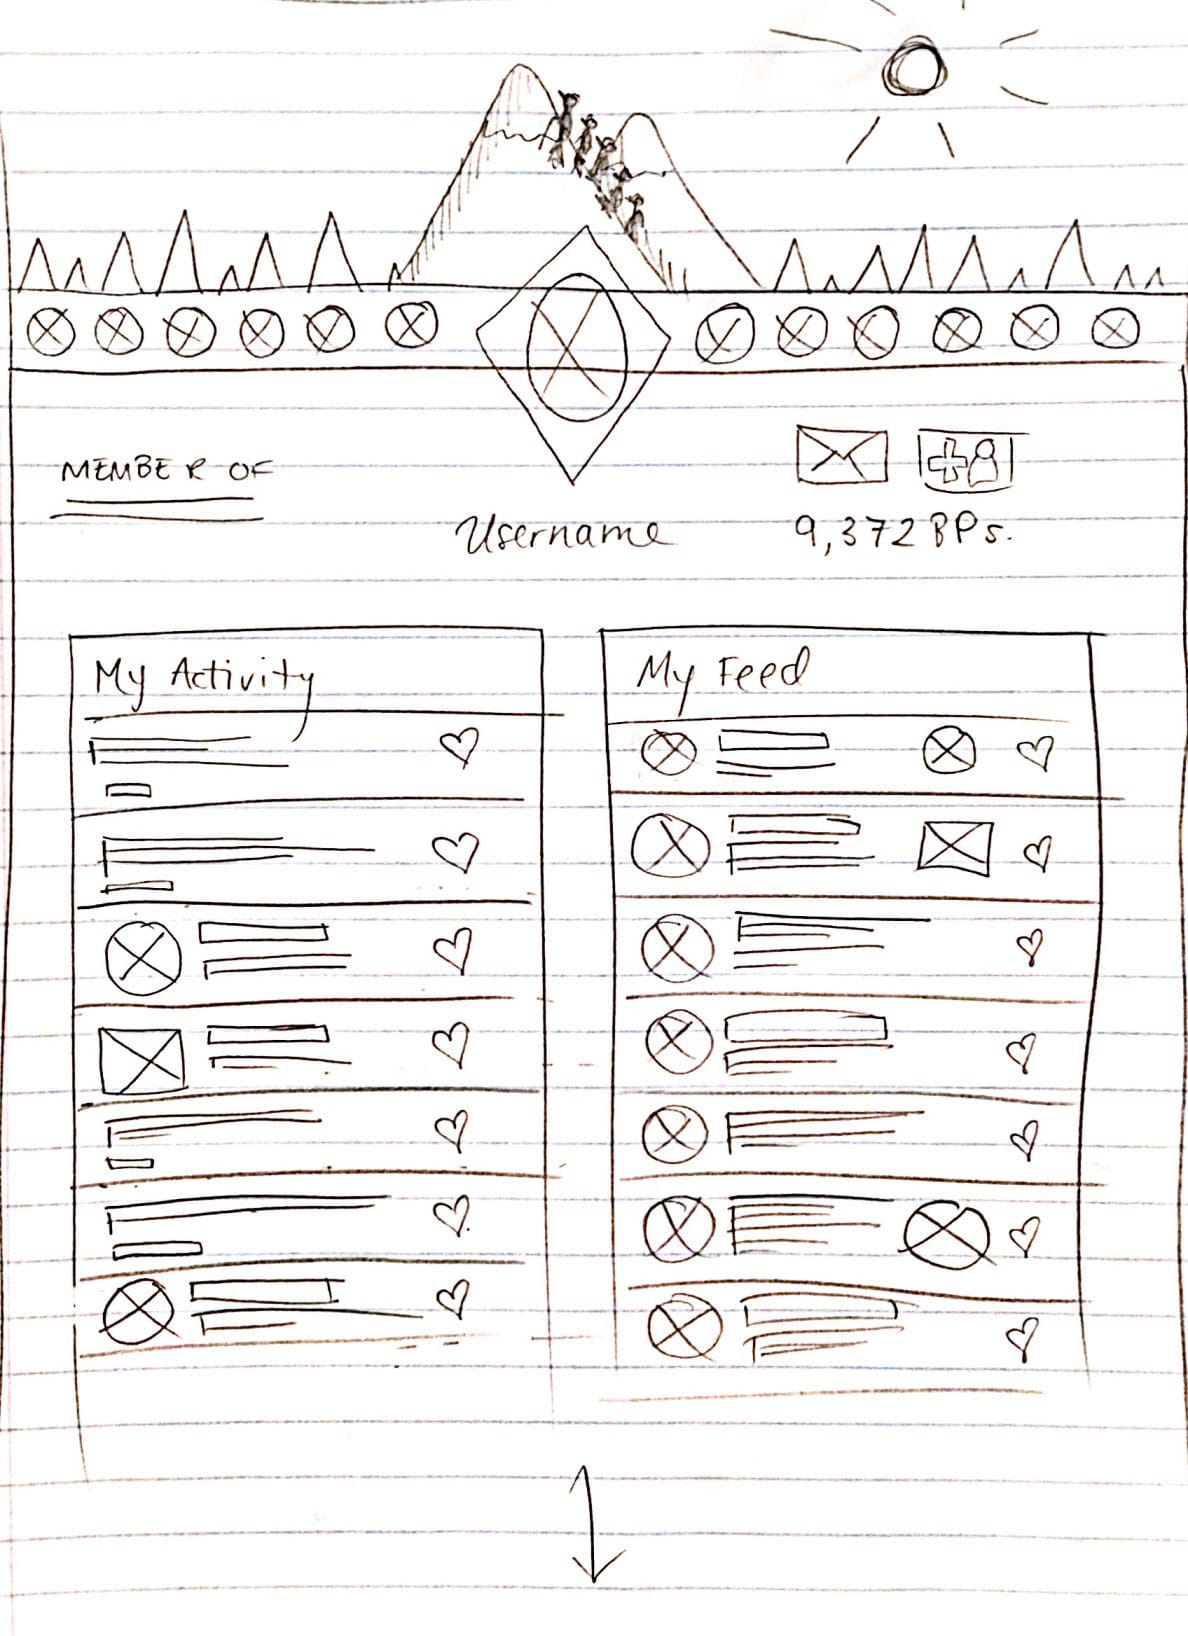 MEMBER OF
Username
9,372 BPs.
My Activity
My Feed